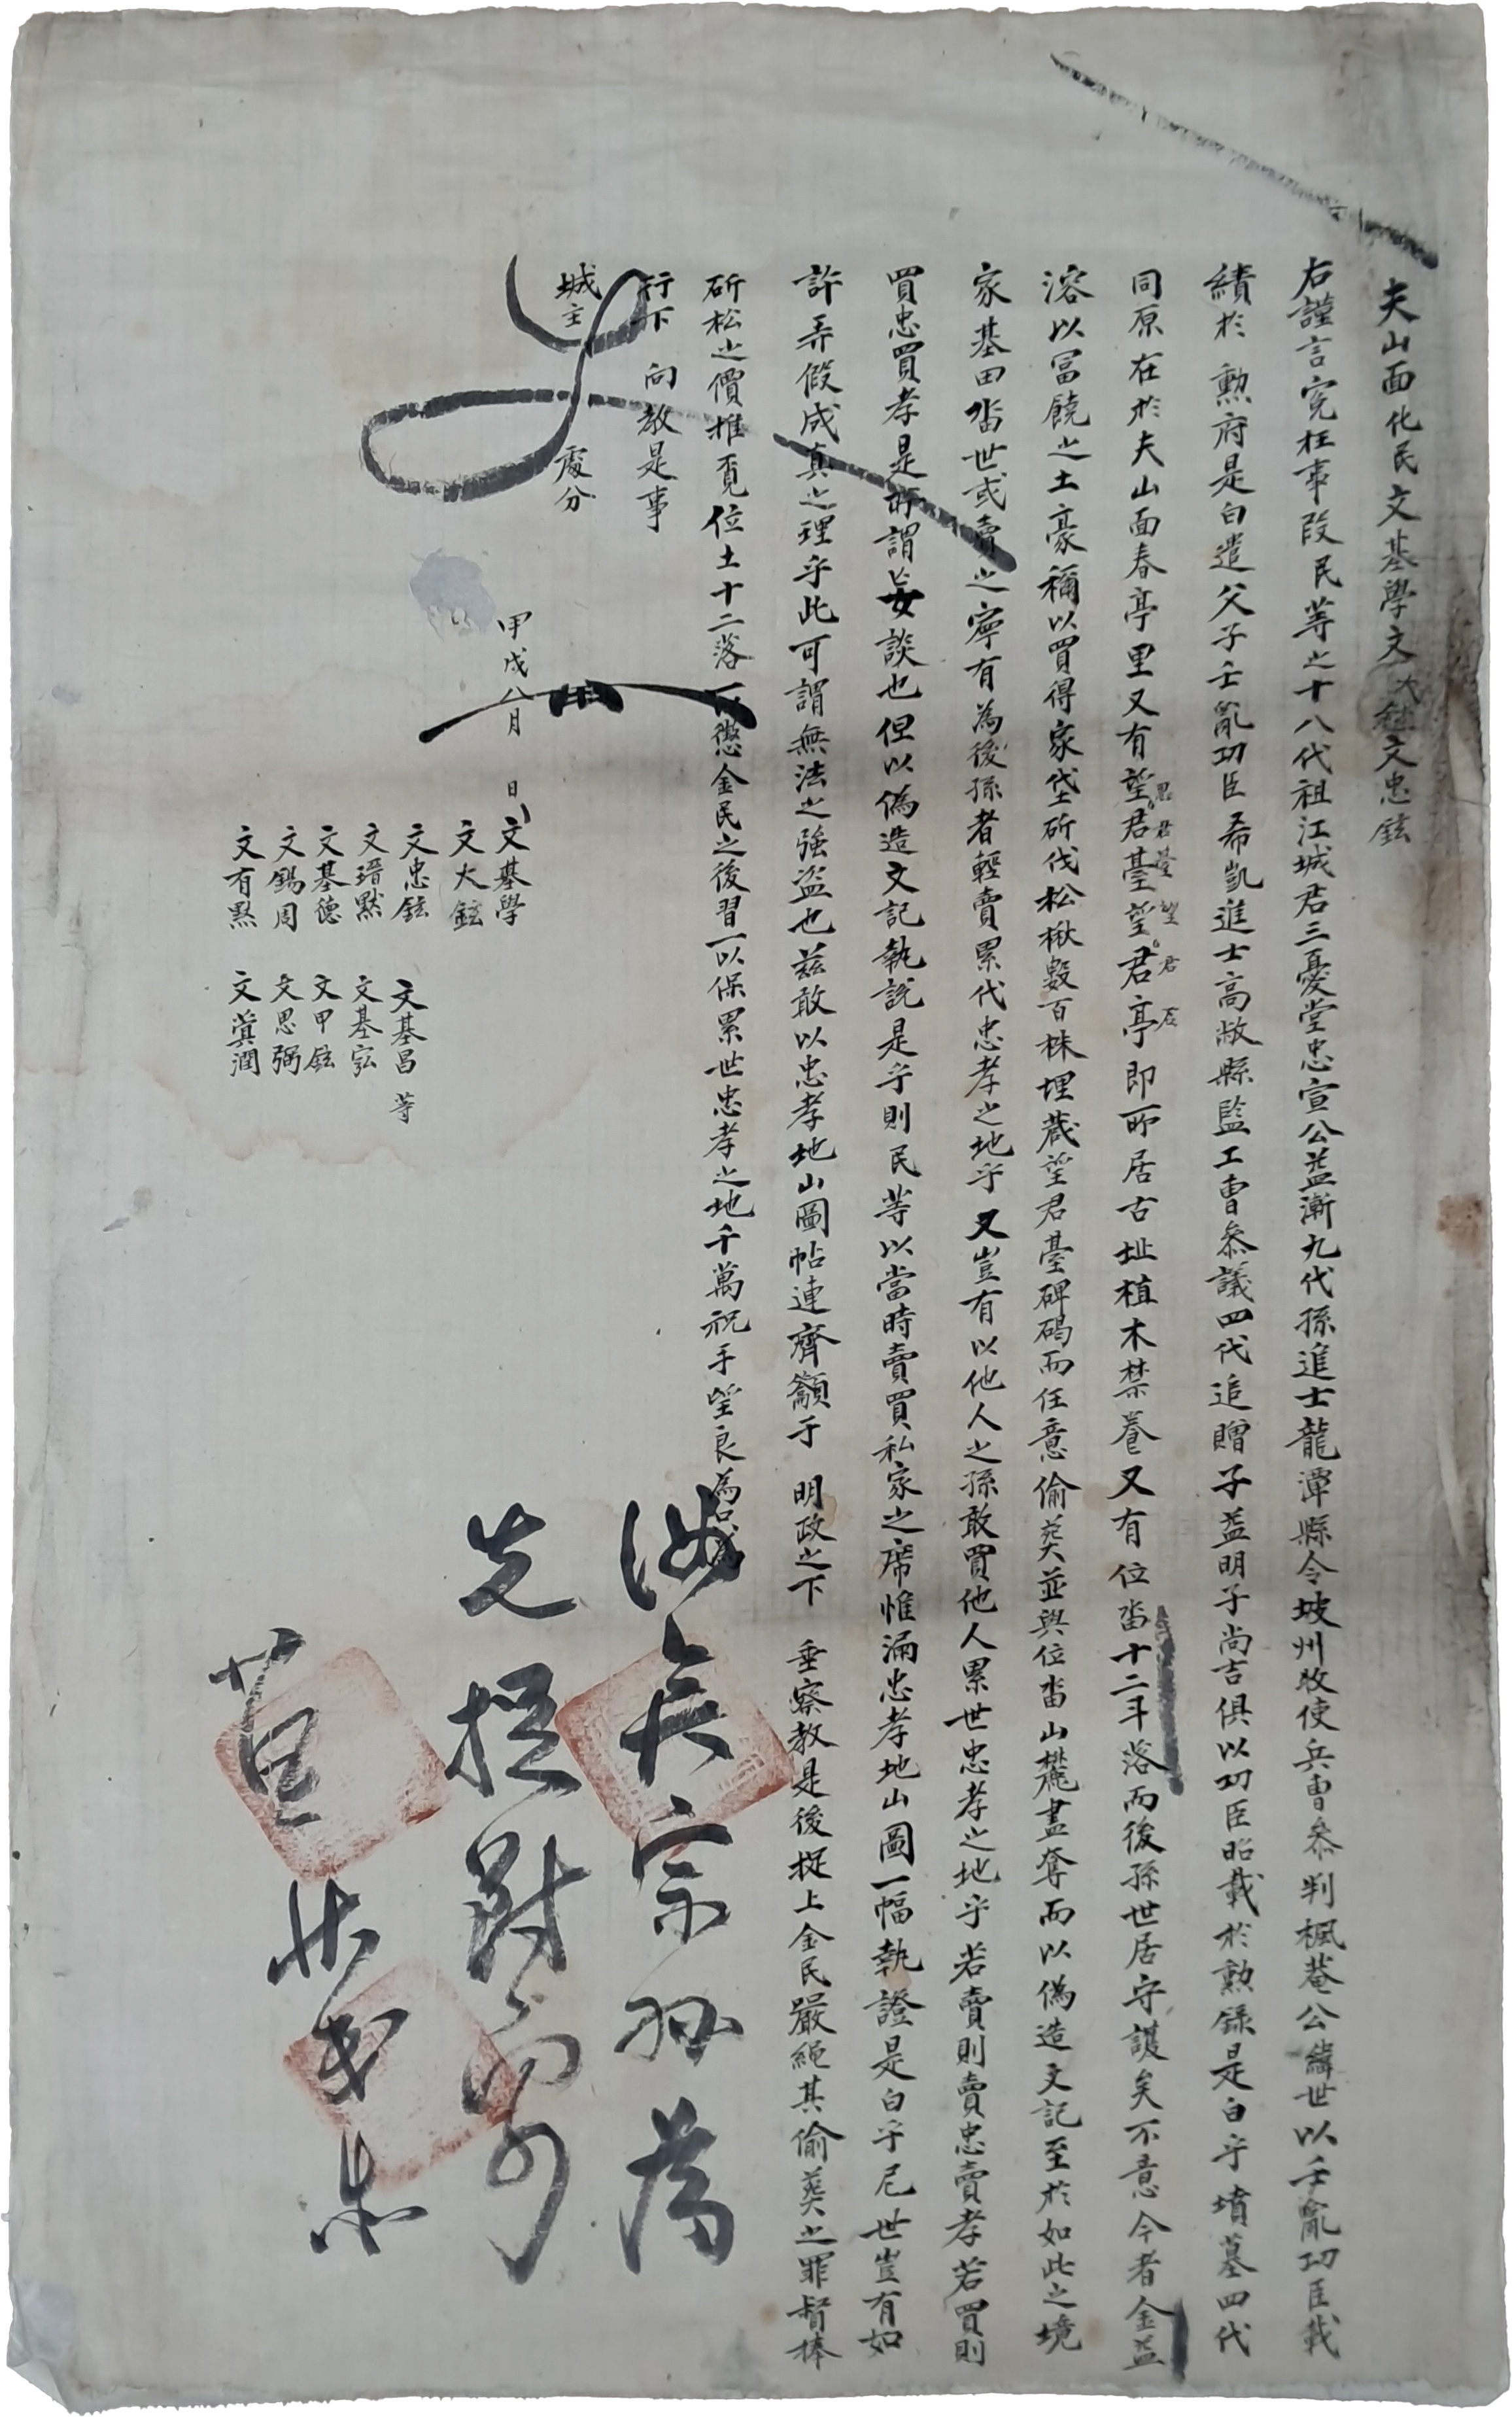 夫山面化民文基學文大鉉文忠鉉
右謹言寃枉事段民等之十八代祖江城君三憂堂忠宣公益漸九代孫進士龍潭縣令坡州牧使兵曹叅判楓菴公諱世以壬亂功臣載
績於 勲府是白遣父子壬亂功臣希凱進士高敞縣監工曹叅議四代追贈子益明子尚吉俱以功臣昭載於勲錄是白乎墳墓四代
同原在於夫山面春亭里又有望君臺望君亭即所居古址植木禁養又有位畓十二斗落而後孫世居守護矣不意今者金益
思君臺望君石
溶以冨饒之土豪稱以買得家垈斫伐松楸數百株埋蔵望君臺碑碣而任意偷葬並與位畓山麓盡奪而以偽造文記至於如此之境
家基田畓世或賣之寧有為後孫者輕賣累代忠孝之地乎又豈有以他人之孫敢買他人累世忠孝之地乎若賣則賣忠賣孝若買則
買忠買孝是所謂妄談也但以偽造文記執説是乎則民等以當時賣買私家之席惟滿忠孝地山圖一幅執證是白乎尼世豈有如
許弄假成真之理乎此可謂無法之強盜也玆敢以忠孝地山圖帖連齊籲于 明政之下 垂察教是後捉上金民嚴繩其偷葬之罪督捧
斫松之價推覓位土十二落一以懲金民之後習一以保累世忠孝之地千萬祝手望良為只為
行下 向教是事
城主 處分
甲戌八月 日
文基學
文大鉉
文忠鉉 文基昌 等
文瑨黙 文基宖
文基德 文甲鉉
文錫周 文思弼
文有黙 文簨潤
先